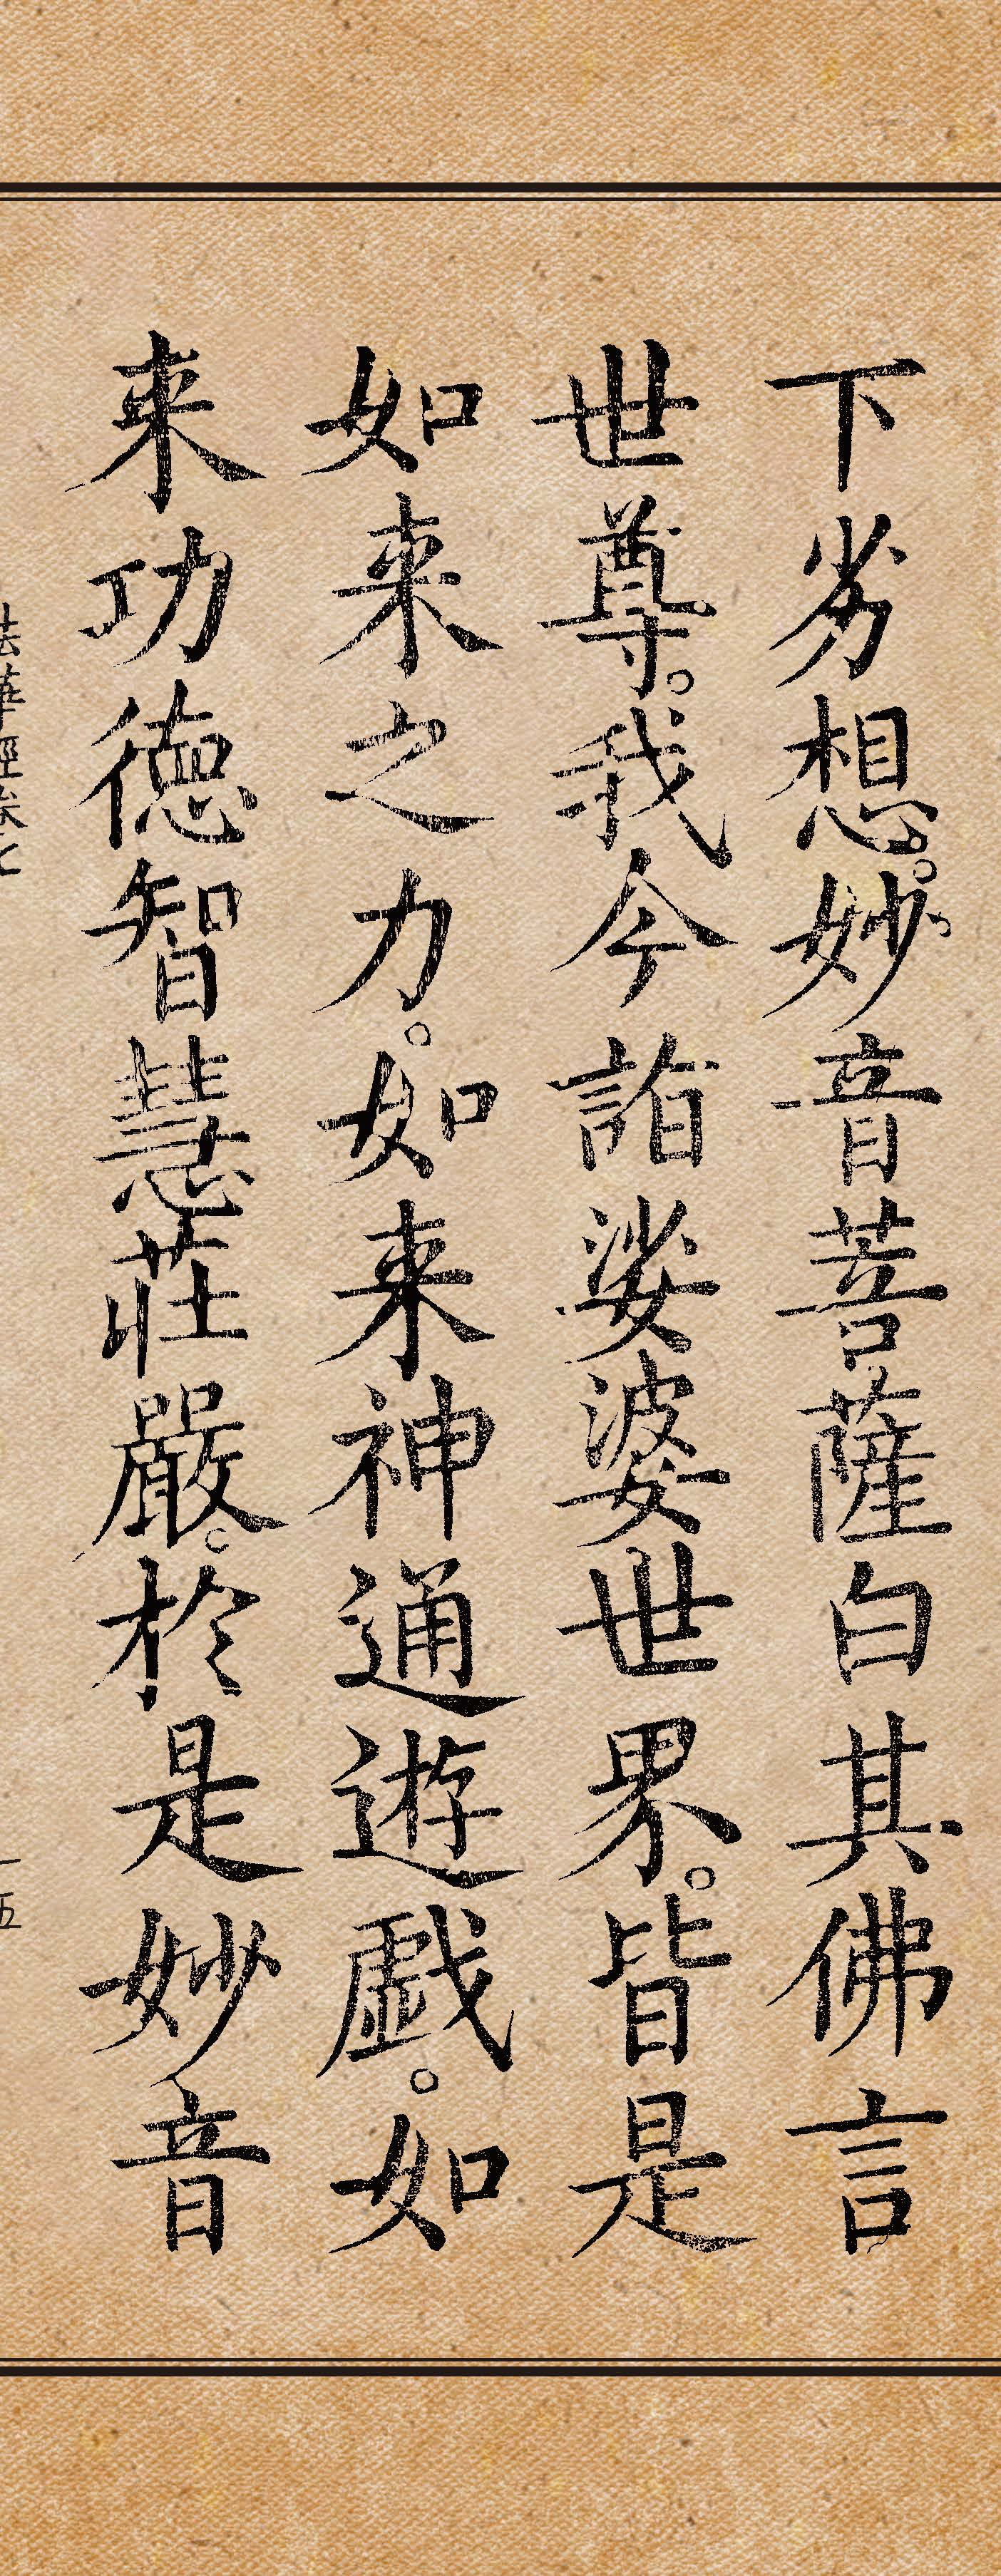 下劣想。妙音菩薩白其佛言
世尊。我今詣娑婆世界。皆是
如来之力。如来神通遊戲。如
来功德智慧莊嚴。於是妙音